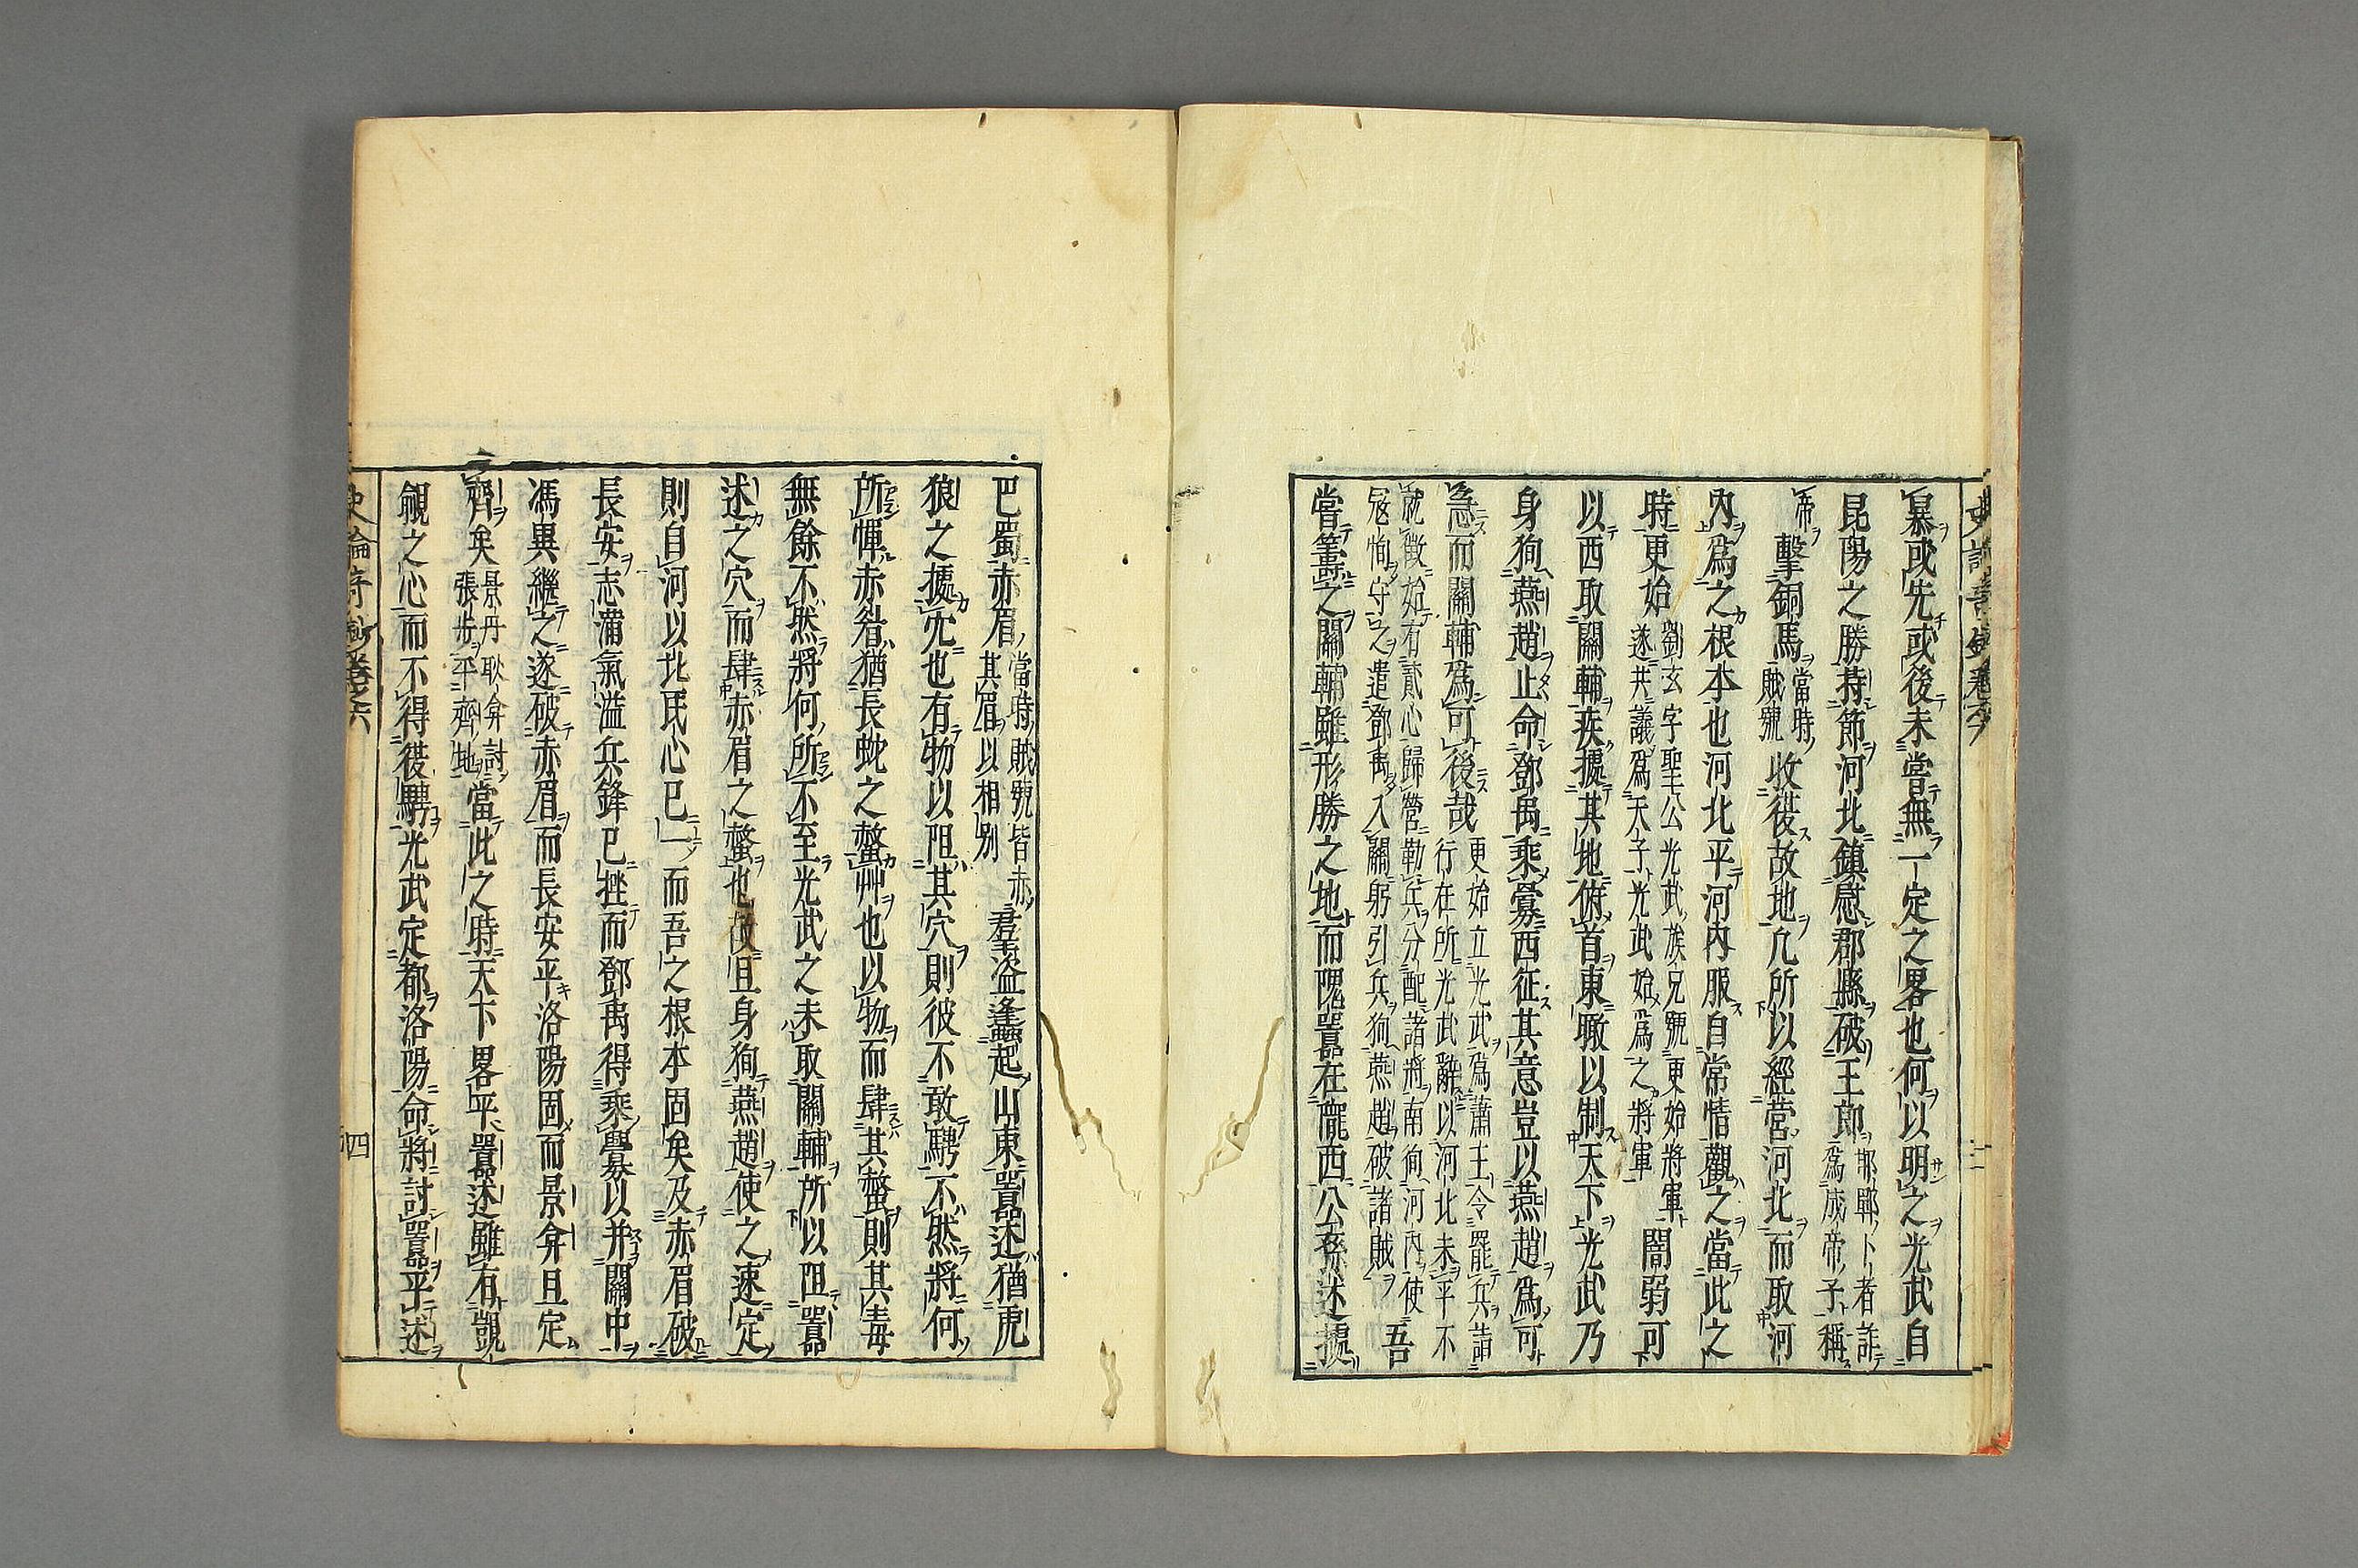 暴或先或後未嘗無一定之畧也何以明之光武自
昆陽之勝持節河北鎮慰郡縣破王郎邯鄲卜者詐爲成帝子稱
帝擊銅馬當時賊號收後故地凢所以經營河北而取河
內爲之根本也河北平河內服自常情觀之當此之
時更始劉玄字聖公光武族兄號更始將軍遂共議爲天子光武始爲之將軍闇弱可
以西取關輔疾據其地俯首東瞰以制天下光武乃
身狥燕趙止命鄧禹乘釁西征其意豈以燕趙爲可
急而關輔爲可後哉更始立光武爲蕭王令罷兵詣行在所光武辭以河北未平不
就徵始有貳心歸營勒兵分配諸將南徇河內使寇恂守之遣鄧禹入關躬引兵狥燕趙破諸賊吾
嘗籌之關輔雖形勝之地而隗囂在隴西公孫述據
巴蜀赤眉當時賊號皆赤其眉以相別羣盗逢蠭起山東囂述猶虎
狼之據穴也有物以阻其穴則彼不敢騁不然將何
所憚赤眉猶長蛇之螫艸也以物而肆其螫則其毒
無餘不然將何所不至光武之未取關輔所以阻囂
述之穴而肆赤眉之螫也故且身狥燕趙使之速定
則自河以北民心已一而吾之根本固矣及赤眉破
長安志滿氣溢兵鋒已挫而鄧禹得乘釁以并關中
馮異繼之遂破赤眉而長安平洛陽固而景弇且定
齊矣景丹耿弇討張步平齊地當此之時天下畧平囂述雖有覬
覦之心而不得後騁光武定都洛陽命將討囂平述
史論奇鈔卷之六
四